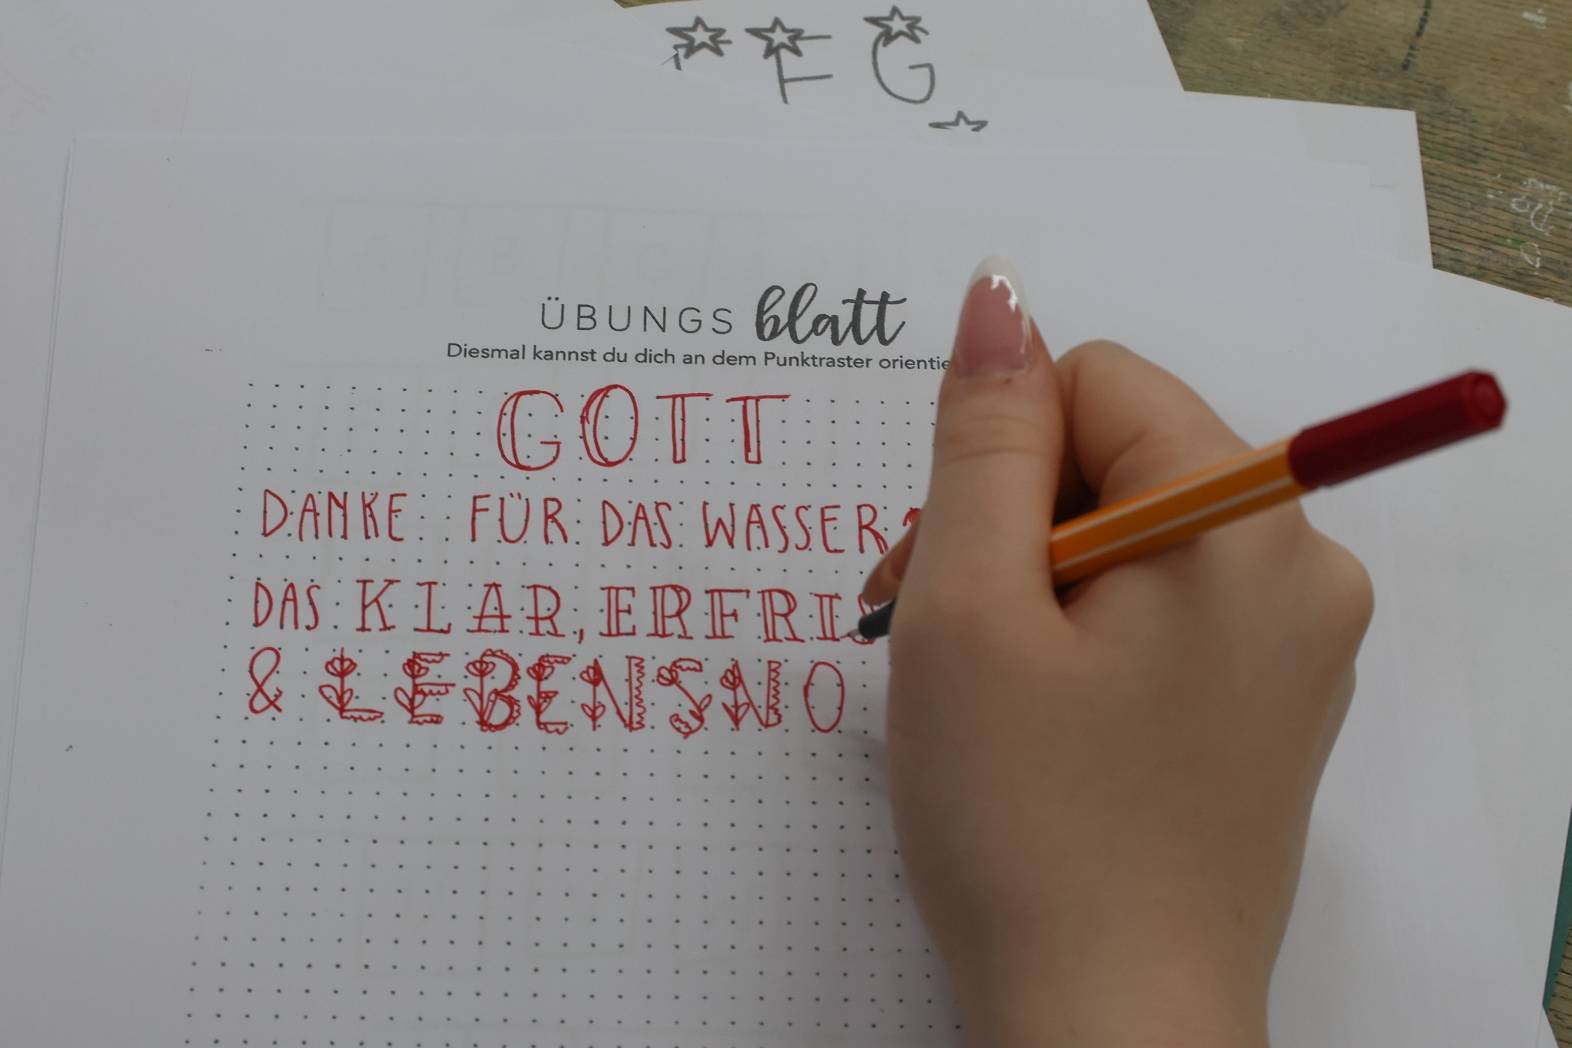 F G
ÜBUNGS blatt
Diesmal kannst du dich an dem Punktraster orientie
GOTT
DANKE FÜR DAS WASSER
DAS KLAR, ERFRIS
& LEBENSNO